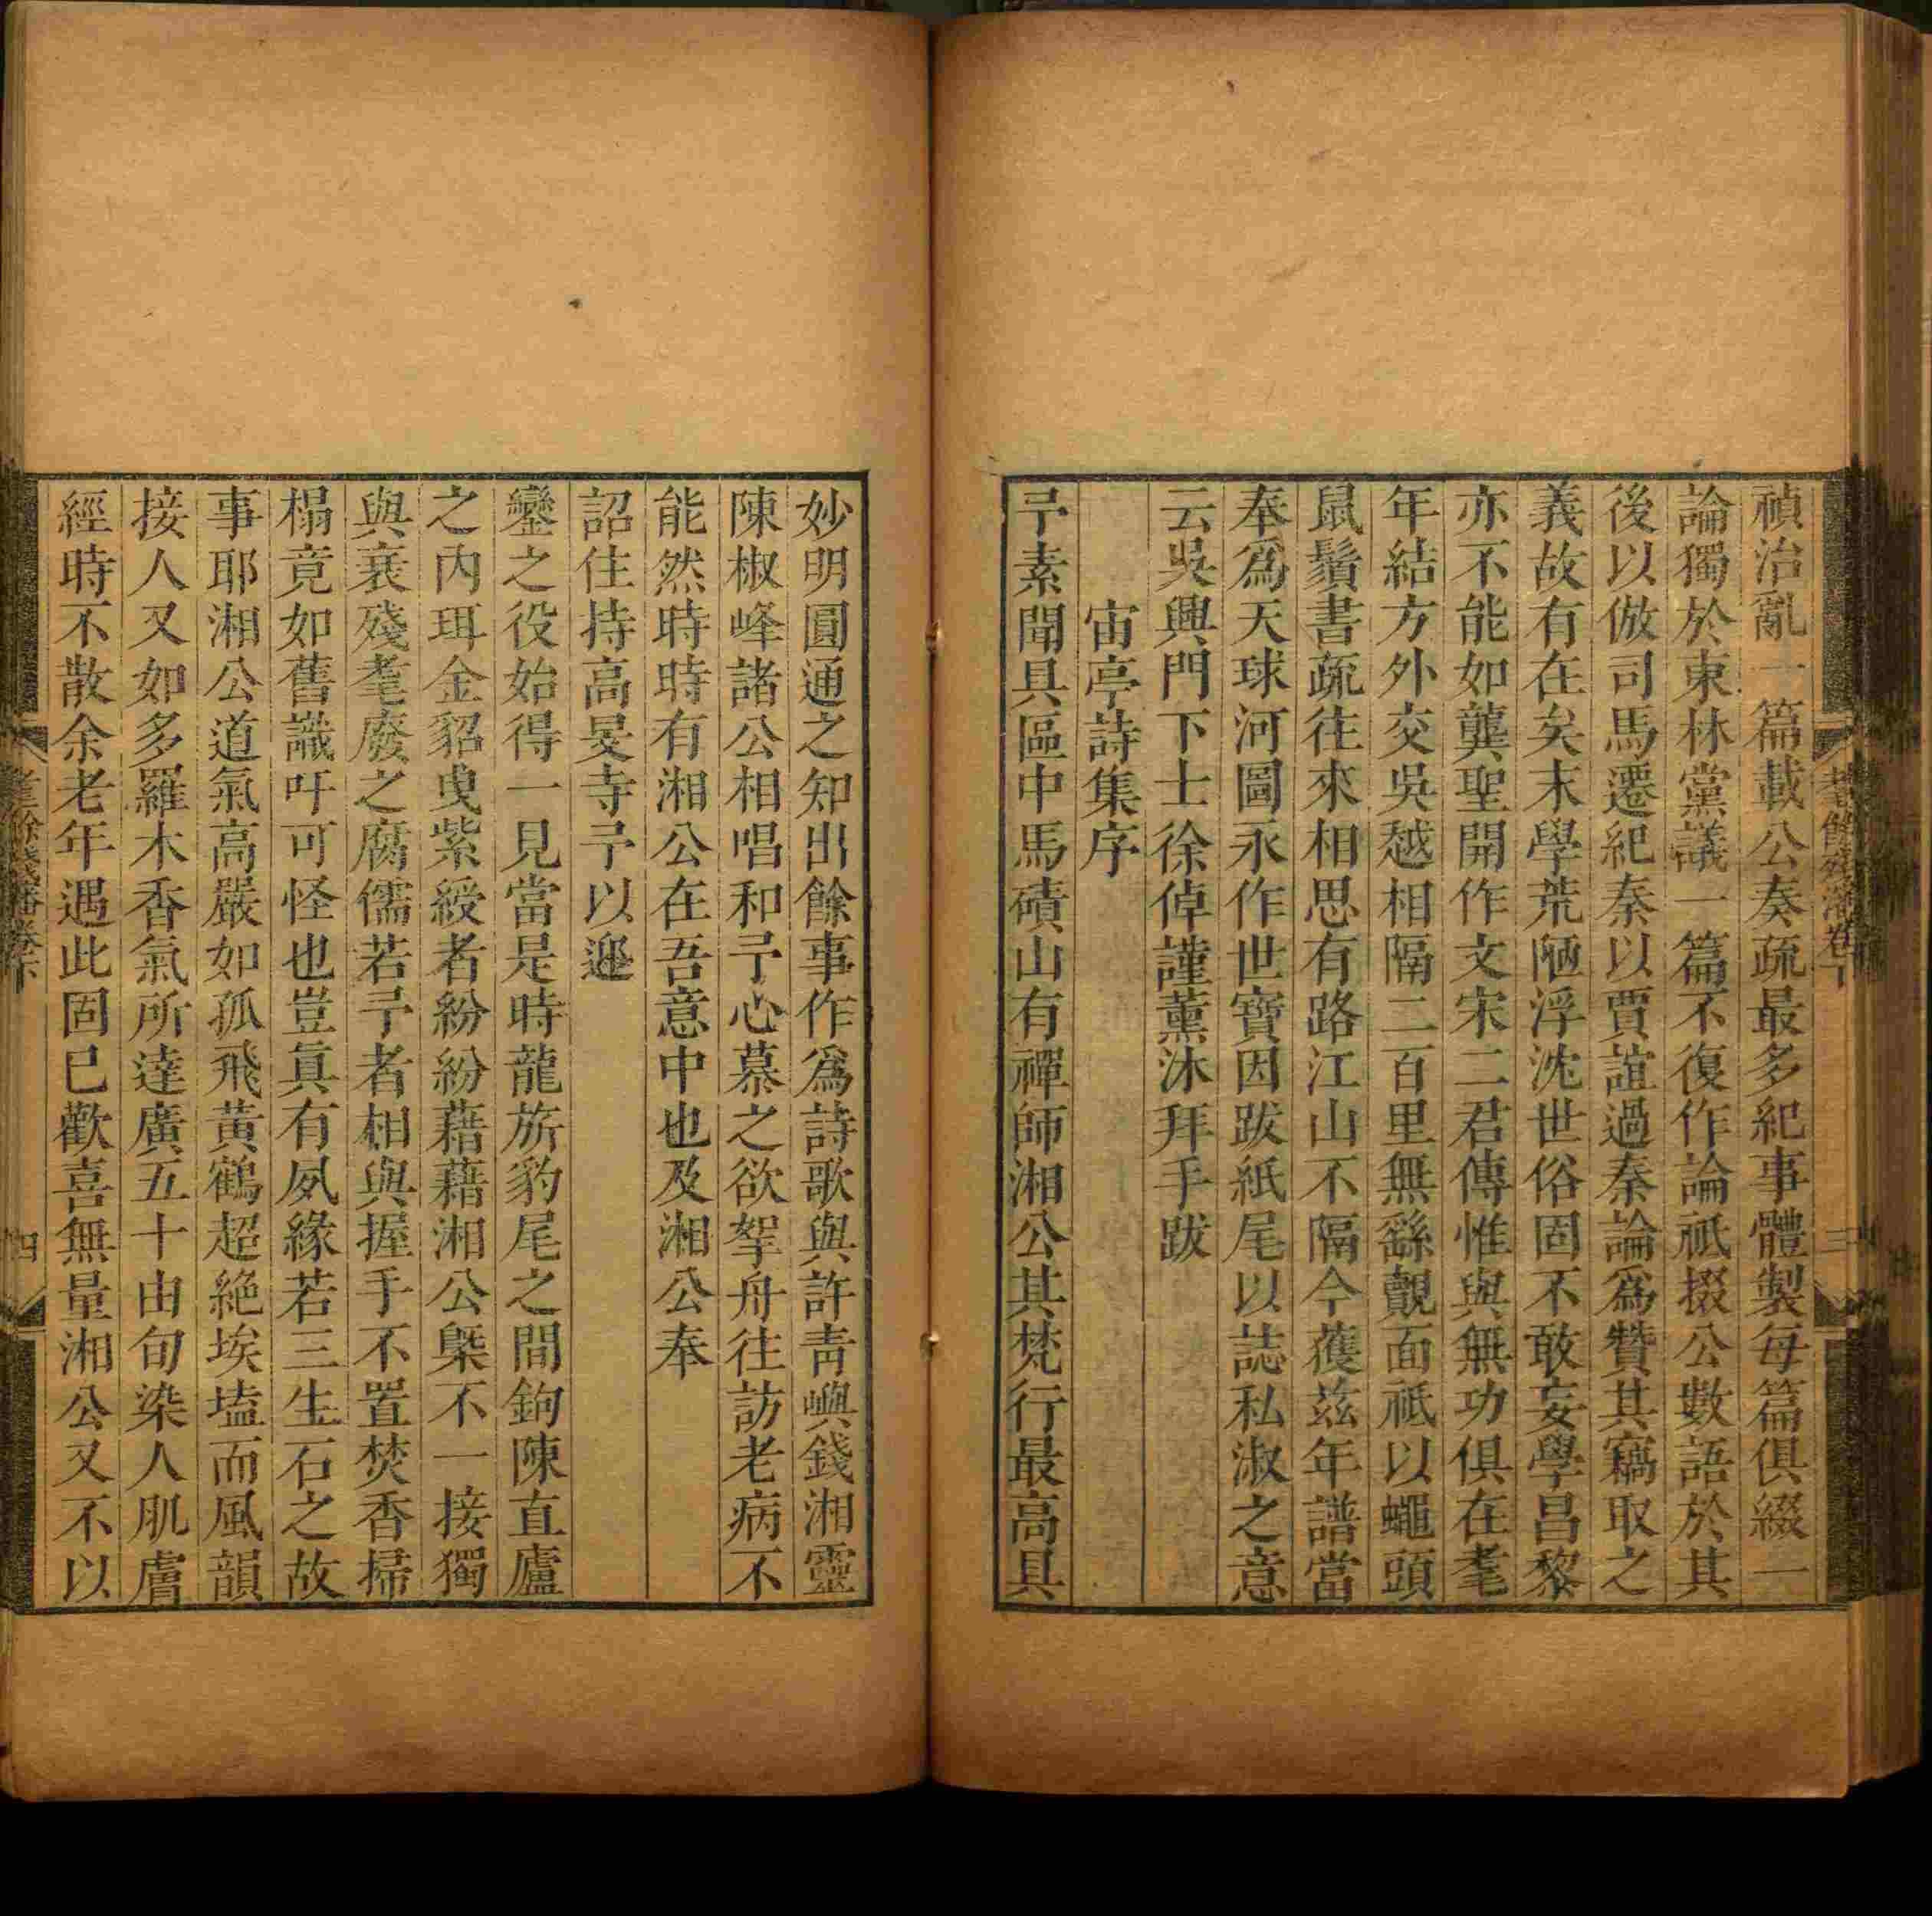 禎治亂一篇載公奏疏最多紀事體製每篇俱綴一
論獨於東林黨議一篇不復作論祇掇公數語於其
後以倣司馬遷紀秦以賈誼過秦論爲贊其竊取之
義故有在矣末學荒陋浮沈世俗固不敢妄學昌黎
亦不能如龔聖開作文宋二君傳惟與無功俱在耄
年結方外交吳越相隔二百里無繇覿面祇以蠅頭
鼠鬚書疏往來相思有路江山不隔今獲茲年譜當
奉爲天球河圖永作世寶因跋紙尾以誌私淑之意
云吳興門下士徐倬謹薰沐拜手跋
宙亭詩集序
予素聞具區中馬磧山有禪師湘公其梵行最高具
妙明圓通之知出餘事作爲詩歌與許靑嶼錢湘靈
陳椒峰諸公相唱和予心慕之欲拏舟往訪老病不
能然時時有湘公在吾意中也及湘公奉
詔住持高旻寺予以迎
鑾之役始得一見當是時龍旂豹尾之間鉤陳直廬
之內珥金貂曳紫綬者紛紛藉藉湘公槩不一接獨
與衰殘耄廢之腐儒若予者相與握手不置焚香掃
榻竟如舊識吁可怪也豈眞有夙緣若三生石之故
事耶湘公道氣高嚴如孤飛黃鶴超絶埃壒而風韻
接人又如多羅木香氣所達廣五十由旬染人肌膚
經時不散余老年遇此固已歡喜無量湘公又不以
耄餘殘瀋卷下
三
耄餘殘瀋卷下
四